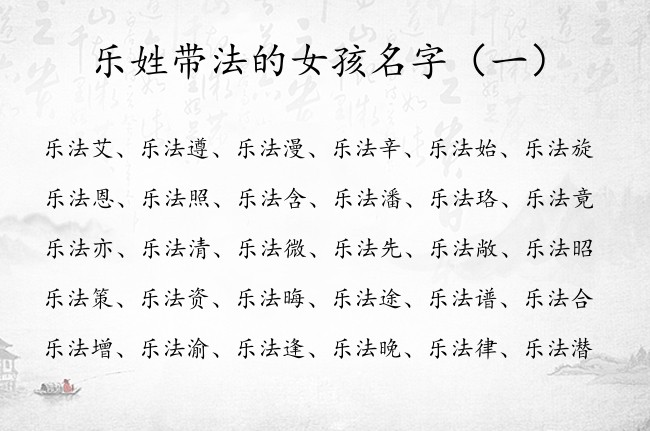 乐姓带法的女孩名字（一）
乐法艾、乐法遵、乐法漫、乐法辛、乐法始、乐法旋
乐法恩、乐法照、乐法含、乐法潘、乐法珞、乐法竟
乐法亦、乐法清、乐法微、乐法先、乐法敞、乐法昭
乐法策、乐法资、乐法晦、乐法途、乐法谱、乐法合
乐法增、乐法渝、乐法逢、乐法晚、乐法律、乐法潜